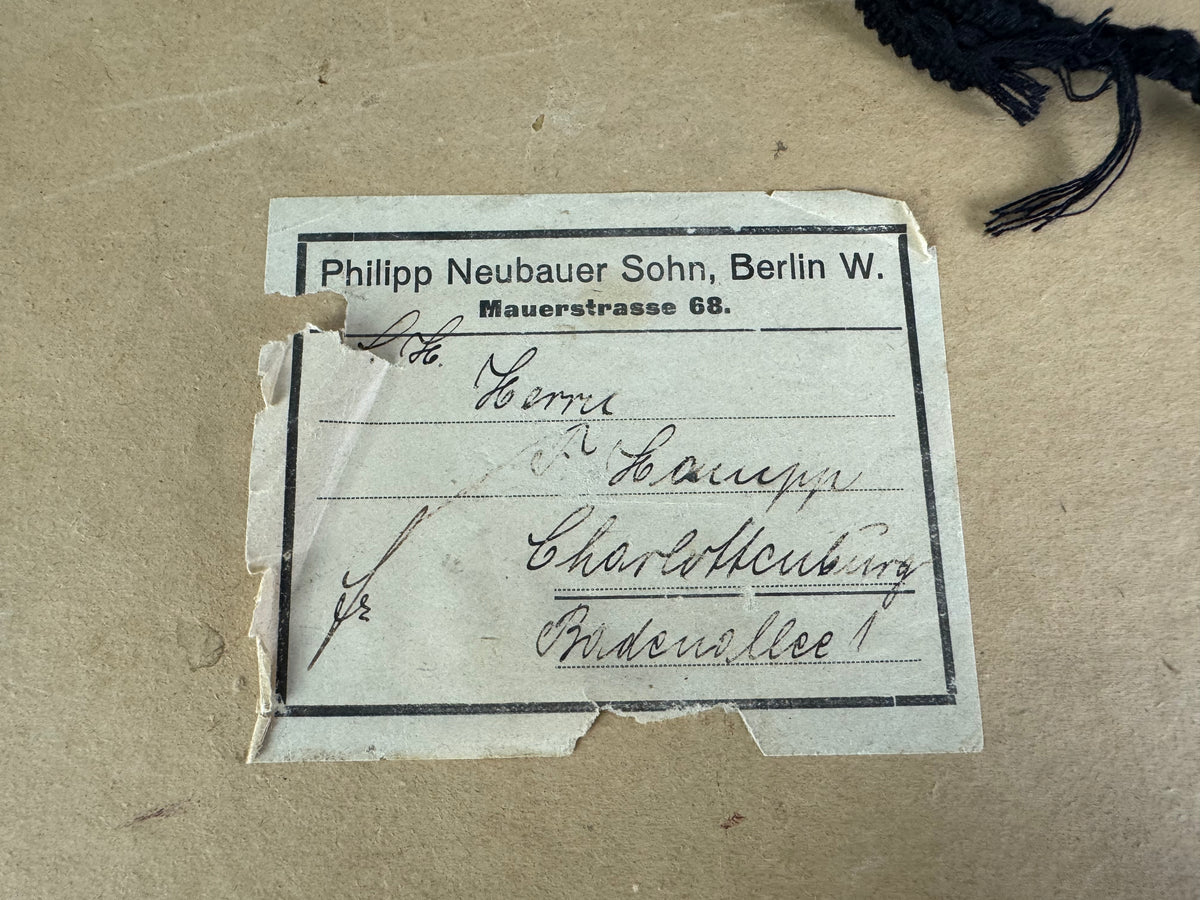 Philipp Neubauer Sohn, Berlin W.
Mauerstrasse 68.
H.
Herrn
Hampp
Charlottenburg
Badenallee 1
fr